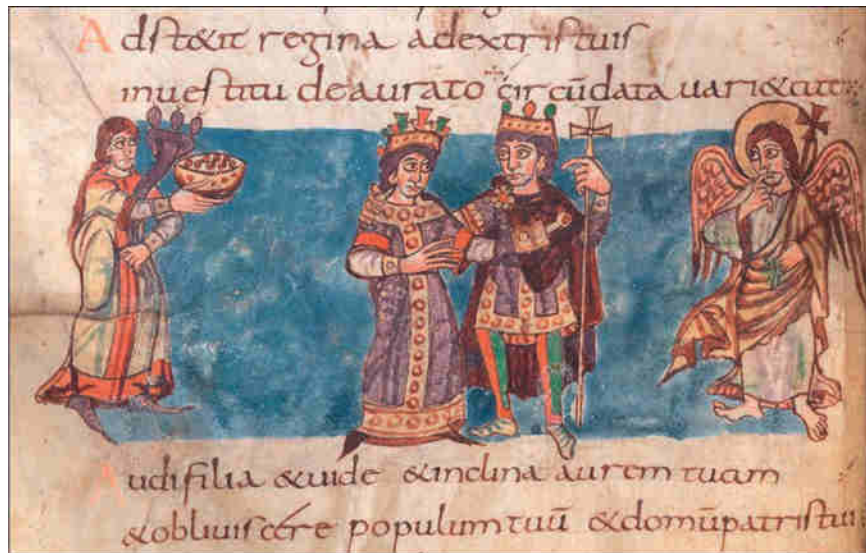 Adstetit regina adextristuis
inuestitu deaurato circūdata uari&ate
Audifilia &uide &inclina aurem tuam
&obliuiscere populumtuū &domūpatristui